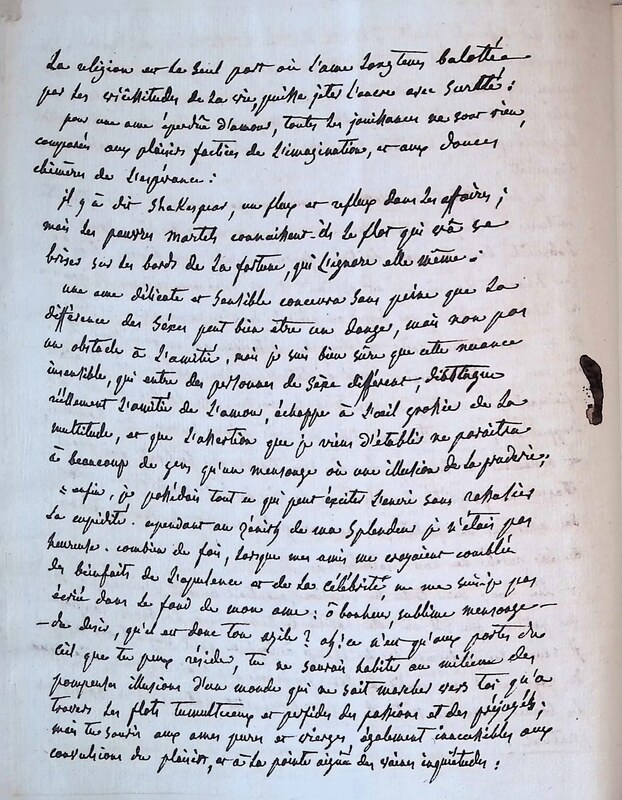 La religion est le seul port où l'ame longtems balottée
par les vicissitudes de la vie, puisse jeter l'ancre avec sureté :
pour une ame éperdûe d'amour, toutes les jouissances ne sont rien,
comparées aux plaisirs factices de l'imagination, et aux douces
chimères de l'espérance :
il y à dit Shakespear, un flux et reflux dans les affaires ;
mais les pauvres mortels connaissent-ils le flot qui va se
briser sur les bords de la fortune, qui l'ignore elle même :
une ame délicate et sensible concevra sans peine que la
différence des séxes peut bien etre un danger, mais non pas
un obstacle à l'amitié, mais je suis bien sûre que cette nuance
insensible, qui entre des personnes de séxe différent, distingue
réellement l'amitié de l'amour, échappe à l'œil grossier de la
multitude, et que l'assertion que je viens d'établir ne paraitra
à beaucoup de gens qu'un mensonge où une illusion de la pruderie,
enfin, je possédais tout ce qui peut éxciter l'envie sans rassasier
la cupidité. cependant au zénith de ma splendeur je n'étais pas
heureuse. combien de fois, lorsque mes amis me croyaient comblée
des bienfaits de l'opulence et de la célébrité, ne me suis-je pas
écriée dans le fond de mon ame : ô bonheur, sublime mensonge —
— du desir, qu'el est donc ton azile ? ah ! ce n'est qu'aux portes du
Ciel que tu peux résider, tu ne saurais habiter au milieu des
pompeuses illusions d'un monde qui ne sait marcher vers toi qu'a
travers les flots tumultueux et perfides des passions et des préjugés ;
mais tu souris aux ames pures et vierges également inaccessibles aux
convulsions du plaisir, et à la pointe aiguë des vaines inquiétudes :